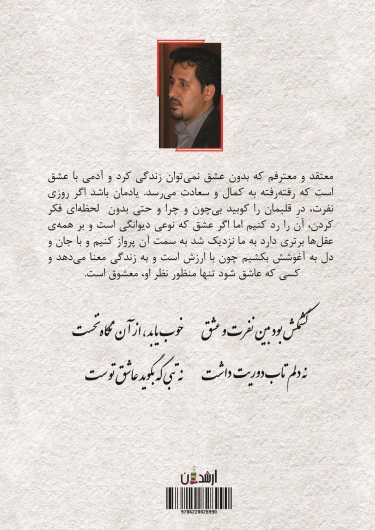 معتقد و معترفم که بدون عشق نمی‌توان زندگی کرد و آدمی با عشق
است که رفته‌رفته به کمال و سعادت می‌رسد. یادمان باشد اگر روزی
نفرت، درِ قلبمان را کوبید بی‌چون و چرا و حتی بدون لحظه‌ای فکر
کردن، آن را رد کنیم اما اگر عشق که نوعی دیوانگی است و بر همه‌ی
عقل‌ها برتری دارد به ما نزدیک شد به سمت آن پرواز کنیم و با جان و
دل به آغوشش بکشیم چون با ارزش است و به زندگی معنا می‌دهد و
کسی که عاشق شود تنها منظور نظر او، معشوق است.
کشمکش بود بین نفرت و عشق خوب یابد، از آن نگاه نخست
نه دلم تاب دوریت داشت نه تبی که بگوید عاشق توست
ارشدان
9786220820990